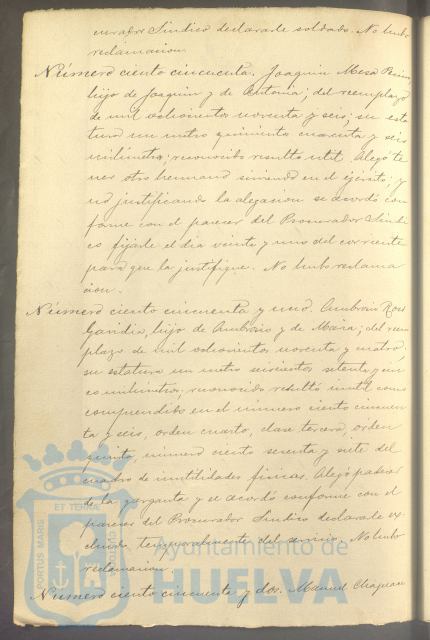 curador Síndico declararle soldado. No hubo
reclamacion
Número ciento cincuenta. Joaquin Mesa
hijo de Joaquin y de Antonia; del reemplazo
de mil ochocientos noventa y seis; su esta
tura un metro quinientos cuarenta y seis
milímetros; reconocido resultó util. Alegó te
ner otro hermano sirviendo en el ejército, y
no justificando la alegacion se acordó con
forme con el parecer del Procurador Sindi
co fijarle el dia veinte y uno del corriente
para que la justifique. No hubo reclama
cion.
Número ciento cincuenta y uno. Ambrosio
hijo de Ambrosio y de Maria; del reem
plazo de mil ochocientos noventa y cuatro,
su estatura un metro seiscientos setenta y cin
co milímetros; reconocido resultó inutil como
comprendido en el número ciento cincuen
ta y seis, orden cuarto, clase tercera, orden
quinto, número ciento sesenta y siete del
cuadro de inutilidades físicas. Alegó padecer
de la garganta y se acordó conforme con el
parecer del Procurador Sindico declararle ex
cluido temporalmente del servicio. No hubo
reclamacion.
Número ciento cincuenta y dos. Manuel
PORTUS MARIS
ET TERRAE
CUSTODIA
Ayuntamiento de
HUELVA